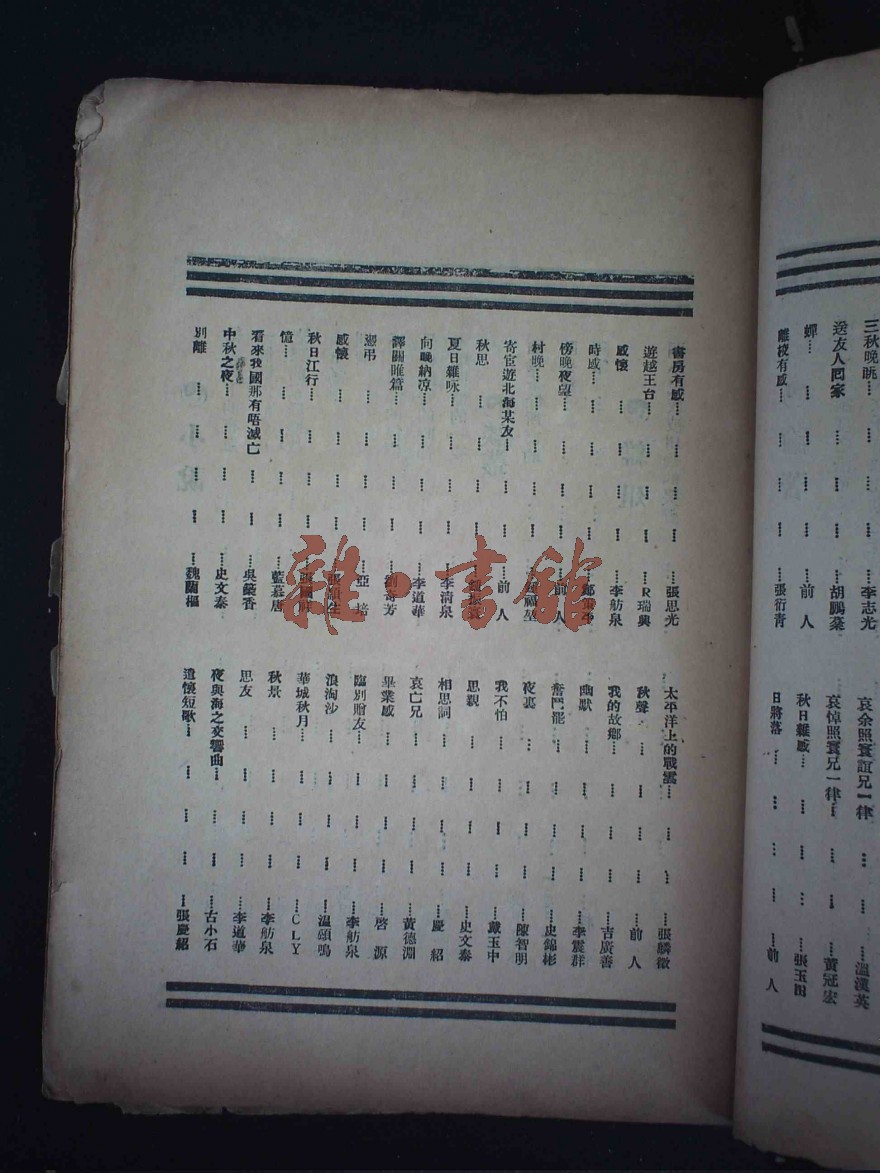 三秋晚眺……李志光
送友人囘家……胡鵬蓁
蟬……前人
離校有感……張衍青
哀余照寰誼兄一律……溫漢英
哀悼照寰兄一律……黃冠宏
秋日雜感……張玉田
日將落……前人
書房有感……張思光
遊越王台……R瑞興
感懷……李舫泉
時感……
傍晚夜望……前人
村晚……
寄宦遊北海某友……前人
秋思……
夏日雜咏……李清泉
向晚納凉……李道華
譯關雎篇……劉奇芳
憑弔……亞培
感懷……
秋日江行……
憶……藍慕唐
看來我國那有唔滅亡……吳藝香
中秋之夜……史文泰
別離……魏蘭樞
太平洋上的戰雲……張麟徵
秋聲……前人
我的故鄉……吉廣善
幽默……李震群
奮鬥罷……史錦彬
夜裏……陳智明
我不怕……戴玉中
思親……史文泰
相思詞……慶紹
哀亡兄……黃德淵
畢業感……啓源
臨別贈友……李舫泉
浪淘沙……溫頌鳴
華城秋月……CLY
秋景……李舫泉
思友……李道華
夜與海之交響曲……古小石
遣懷短歌……張慶紹
雜·書館